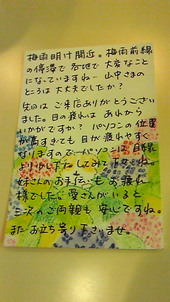 梅雨明け間近。梅雨前線
の停滞で各地で大変なこと
になっていますね… 山中さまの
ところは大丈夫でしたか?
先日はご来店ありがとうござい
ました。目の疲れはあれから
いかがですか? パソコンの位置
が高すぎても目が疲れやすく
なりますので…パソコンを目線
より下げたしてみて下さいね。
妹さんのお手伝いもお疲れ
様でした。愛さんがいると
三次のご両親も安心ですね。
またお立ち寄り下さいませ。